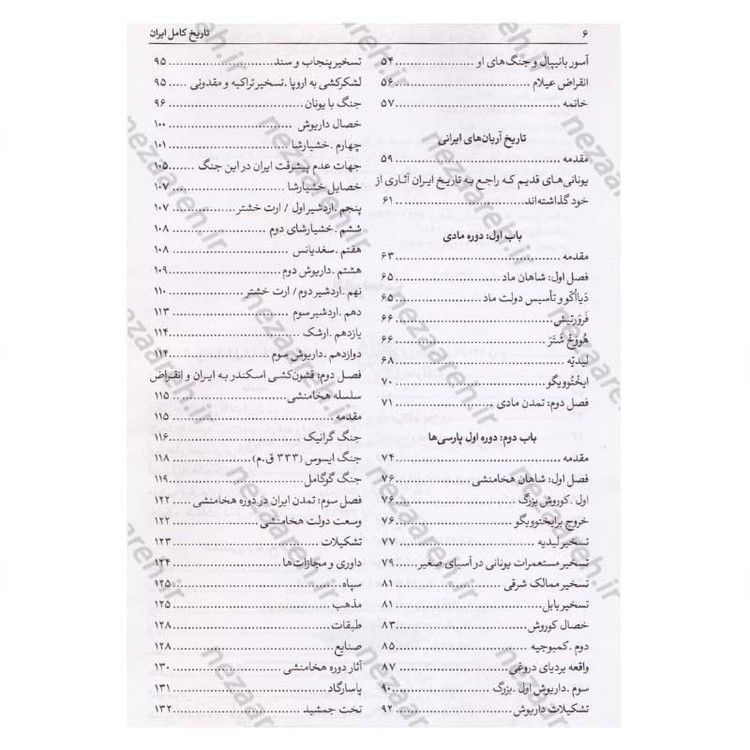 ۶
تاریخ کامل ایران
آسور بانیپال و جنگ‌های او ........................ ۵۴
انقراض عیلام ........................ ۵۶
خاتمه ........................ ۵۷
تاریخ آریان‌های ایرانی
مقدمه ........................ ۵۹
یونانی‌های قدیم که راجع به تاریخ ایران آثاری از
خود گذاشته‌اند ........................ ۶۱
باب اول: دوره مادی
مقدمه ........................ ۶۳
فصل اول: شاهان ماد ........................ ۶۵
دَیااُکّو و تأسیس دولت ماد ........................ ۶۵
فرَوَرتیش ........................ ۶۶
هُووَخْ شَتَرَ ........................ ۶۶
لیدیّه ........................ ۶۸
ایخْتُوویگو ........................ ۷۰
فصل دوم: تمدن مادی ........................ ۷۱
باب دوم: دوره اول پارسی‌ها
مقدمه ........................ ۷۴
فصل اول: شاهان هخامنشی ........................ ۷۶
اول .کوروش بزرگ ........................ ۷۶
خروج برایختوویگو ........................ ۷۶
تسخیر لیدیه ........................ ۷۷
تسخیر مستعمرات یونانی در آسیای صغیر ........................ ۷۹
تسخیر ممالک شرقی ........................ ۸۱
تسخیر بابل ........................ ۸۱
خصال کوروش ........................ ۸۳
دوم .کمبوجیه ........................ ۸۵
واقعه بردیای دروغی ........................ ۸۷
سوم .داریوش اول .بزرگ ........................ ۹۰
تشکیلات داریوش ........................ ۹۲
تسخیر پنجاب و سند ........................ ۹۵
لشکرکشی به اروپا .تسخیر تراکیه و مقدونی ..... ۹۵
جنگ با یونان ........................ ۹۶
خصال داریوش ........................ ۱۰۰
چهارم .خشیارشا ........................ ۱۰۱
جهات عدم پیشرفت ایران در این جنگ ........................ ۱۰۵
خصایل خشیارشا ........................ ۱۰۷
پنجم .اردشیر اول / ارت خشتر ........................ ۱۰۷
ششم .خشیارشای دوم ........................ ۱۰۸
هفتم .سغدیانس ........................ ۱۰۸
هشتم .داریوش دوم ........................ ۱۰۹
نهم .اردشیر دوم / ارت خشتر ........................ ۱۱۰
دهم .اردشیر سوم ........................ ۱۱۳
یازدهم .ارشک ........................ ۱۱۴
دوازدهم .داریوش سوم ........................ ۱۱۴
فصل دوم: قشون‌کشی اسکندر به ایران و انقراض
سلسله هخامنشی ........................ ۱۱۵
مقدمه ........................ ۱۱۵
جنگ گرانیک ........................ ۱۱۶
جنگ ایسوس (۳۳۳ ق.م) ........................ ۱۱۸
جنگ گوگامل ........................ ۱۱۹
فصل سوم: تمدن ایران در دوره هخامنشی ..... ۱۲۲
وسعت دولت هخامنشی ........................ ۱۲۲
تشکیلات ........................ ۱۲۳
داوری و مجازات‌ها ........................ ۱۲۴
سپاه ........................ ۱۲۵
مذهب ........................ ۱۲۵
طبقات ........................ ۱۲۸
صنایع ........................ ۱۲۸
آثار دوره هخامنشی ........................ ۱۳۰
پاسارگاد ........................ ۱۳۱
تخت جمشید ........................ ۱۳۲
nezaareh.ir